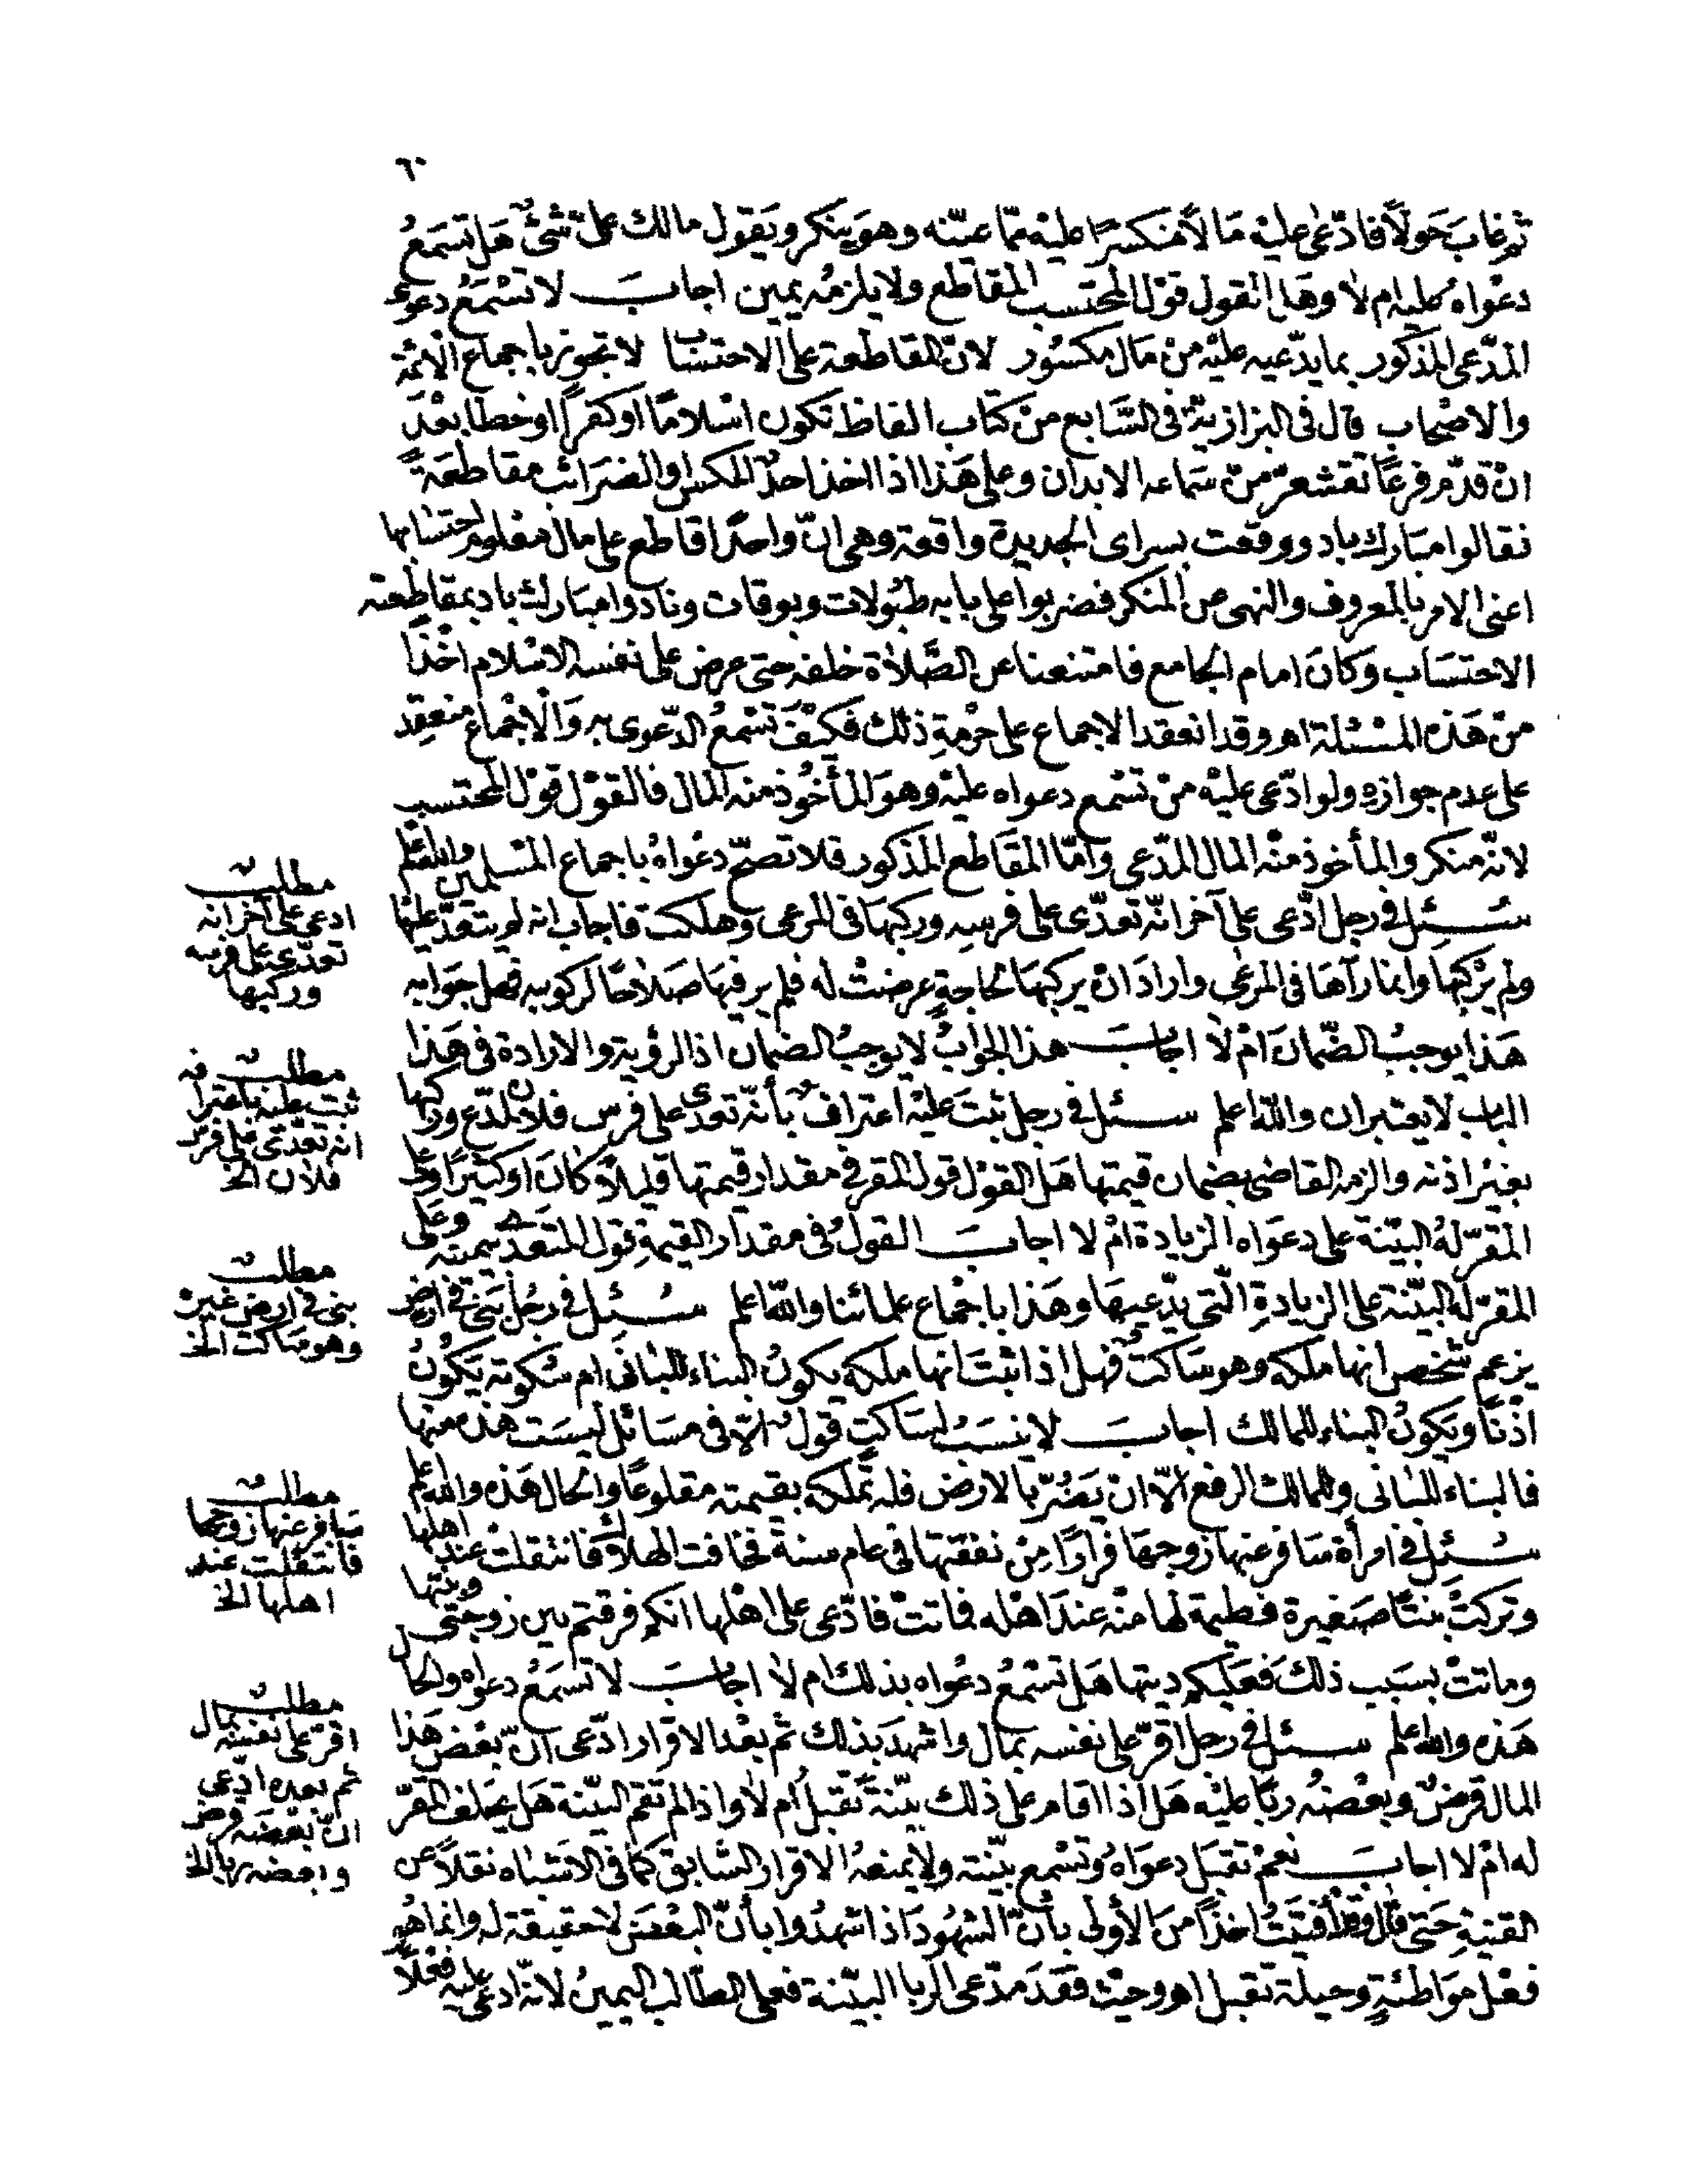 ٦٠
ثم غاب حولًا فادّعى عليه مالًا منكسرًا عليه ممّا عيّنه وهو ينكر ويقول مالك علىّ شئ هل تسمع
دعواه عليه ام لا وهل القول قول المحتسب المقاطع ولا يلزمه يمين اجاب لا تسمع دعوى
المدّعى المذكور بما يدّعيه عليه من مال مكسور لانّ المقاطعة على الاحتساب لا تجوز باجماع الائمّة
والاصحاب قال فى البزازيّة فى السّابع من كتاب الفاظ تكون اسلامًا او كفرًا او خطأ بعد
ان قدّم فرعًا تقشعرّ من سماعه الابدان وعلى هذا اذا اخذ احد المكس او الضرائب مقاطعةً
فقالوا مبارك باد ووقعت بسراى الجديدة واقعة وهى انّ واحدًا قاطع على مال معلوم احتسابها
اعنى الامر بالمعروف والنهى عن المنكر فضربوا على بابه طبولات وبوقات ونادوا مبارك باد بمقاطعته
الاحتساب وكان امام الجامع فامتنعنا عن الصّلاة خلفه حتى عرض على نفسه الاسلام اخذًا
من هذه المسئلة اھ وقد انعقد الاجماع على حرمة ذلك فكيف تسمع الدّعوى به والاجماع منعقد
على عدم جوازه ولو ادّعى عليه من تسمع دعواه عليه وهو المأخوذ منه المال فالقول قول المحتسب
لانّه منكر والمأخوذ منه المال المدّعى وامّا المقاطع المذكور فلا تصحّ دعواه باجماع المسلمين والله اعلم
سئل فى رجل ادّعى على آخر انّه تعدّى على فرسه وركبها فى المرعى وهلكت فاجاب انه لم يتعدّ عليها
ولم يركبها وانما رآها فى المرعى واراد ان يركبها لحاجة عرضت له فلم ير فيها صلاحًا لركوبه فهل جوابه
هذا يوجب الضّمان ام لا اجاب هذا الجواب لا يوجب الضمان اذ الرؤية والارادة فى هذا
الباب لا يعتبران والله اعلم سئل فى رجل ثبت عليه اعترافه بأنّه تعدى على فرس فلان المدّعى وركبها
بغير اذنه والزمه القاضى بضمان قيمتها هل القول قول المقر فى مقدار قيمتها قليلًا كان او كثيرًا وعلى
المقرّ له البيّنة على دعواه الزيادة ام لا اجاب القول فى مقدار القيمة قول المتعدّى بيمينه وعلى
المقرّ له البيّنة على الزيادة الّتى يدّعيها وهذا باجماع علمائنا والله اعلم سئل فى رجل بنى فى ارض
يزعم شخص انها ملكه وهو ساكت فهل اذا ثبت انها ملكه يكون البناء للبانى ام سكوته يكون
اذنًا ويكون البناء للمالك اجاب لا ينسب لساكت قول الّا فى مسائل ليست هذه منها
فالبناء للبانى وللمالك الرفع الّا ان يضرّ بالارض فله تملكه بقيمته مقلوعًا والحال هذه والله اعلم
سئل فى امرأة سافر عنها زوجها فرارًا من نفقتها فى عام سنة فخافت الهلاك فانتقلت عند اهلها
وتركت بنتًا صغيرة فطيمة لها منه عند اهله فماتت فادّعى على اهلها انكم فرقتم بين زوجتى وبنتها
وماتت بسبب ذلك فعليكم ديتها هل تسمع دعواه بذلك ام لا اجاب لا تسمع دعواه والحال
هذه والله اعلم سئل فى رجل اقرّ على نفسه بمال واشهد بذلك ثم بعد الاقرار ادّعى انّ بعض هذا
المال قرض وبعضه ربا عليه هل اذا اقام على ذلك بيّنة تقبل ام لا واذا لم تقم البيّنة هل يحلف المقرّ
له ام لا اجاب نعم تقبل دعواه وتسمع بيّنته ولا يمنعه الاقرار السّابق كما فى الاشباه نقلًا عن
القنية حتى قال وقد أفتيت اخذًا من الأولى بأنّ الشهود اذا شهدوا بأنّ البعض لا حقيقة له وانما هو
فعل مواطئة وحيلة تقبل اھ وحيث فقد مدّعى الربا البيّنة فعلى الطّالب اليمين لانّه ادعى عليه فعلًا
مطلب
ادعى على آخر انه
تعدّى على فرسه
وركبها
مطلب
ثبت عليه باعترافه
انه تعدّى على فرس
فلان الخ
مطلب
بنى فى ارض غيره
وهو ساكت الخ
مطلب
سافر عنها زوجها
فانتقلت عند
اهلها الخ
مطلب
اقر على نفسه بمال
ثم بعده ادّعى
انّ بعضه قرض
وبعضه ربا الخ